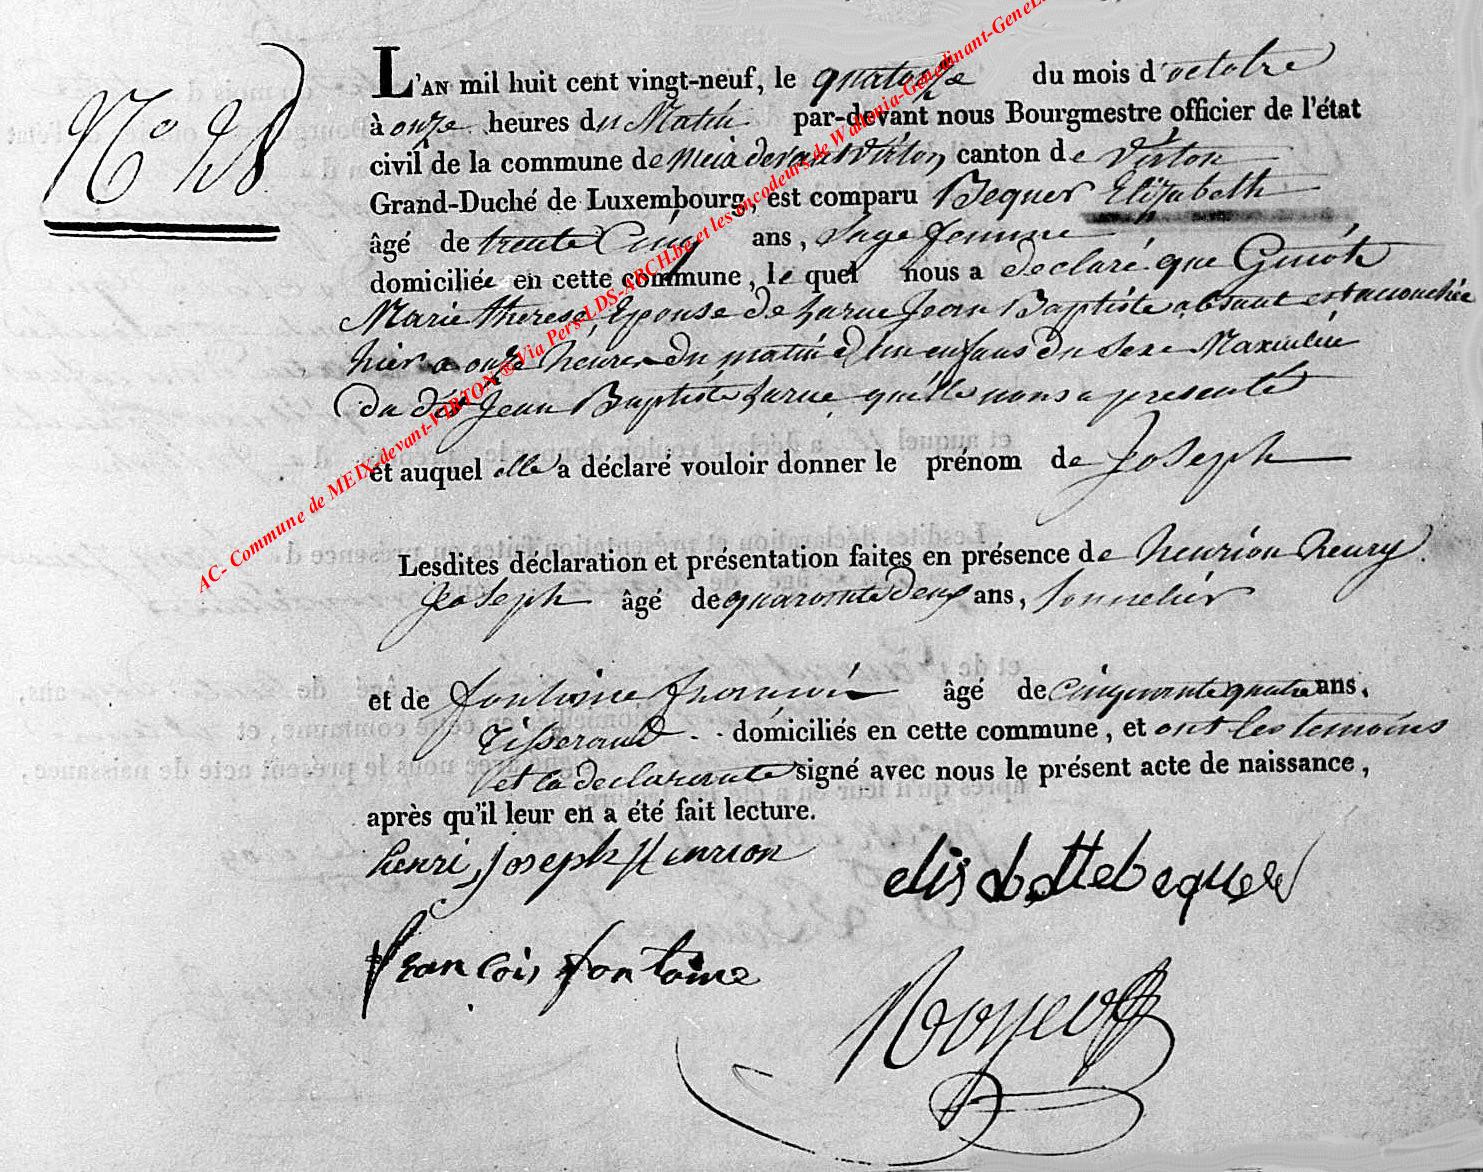 N° 28
L'AN mil huit cent vingt-neuf, le quatorze du mois d'octobre
à onze heures du Matin par-devant nous Bourgmestre officier de l'état
civil de la commune de Meix devant Virton, canton de Virton
Grand-Duché de Luxembourg, est comparu Bequer Elizabeth
âgé de trente Cinq ans, Sage femme
domiciliée en cette commune, le quel nous a declaré que Guiot
Marie therese, Epouse de Larue Jean Baptiste absant est accouchée
hier a onze heures du matin d'un enfans du sexe Masculin
du dit Jean Baptiste Larue, qu'elle nous a presenté
et auquel elle a déclaré vouloir donner le prénom de Joseph
Lesdites déclaration et présentation faites en présence de henrion henry
Joseph âgé de quarante deux ans, tonnelier
et de fontaine francois âgé de cinquante quatre ans,
Tisserand domiciliés en cette commune, et ont les temoins
et la declarante signé avec nous le présent acte de naissance,
après qu'il leur en a été fait lecture.
henri joseph Henrion
elisabette bequer
francois fontaine
AC- Commune de MEIX-devant-VIRTON ® Via Pers-LDS-ARCH.be et les encodeurs de Wallonia-Genedinant-GeneL